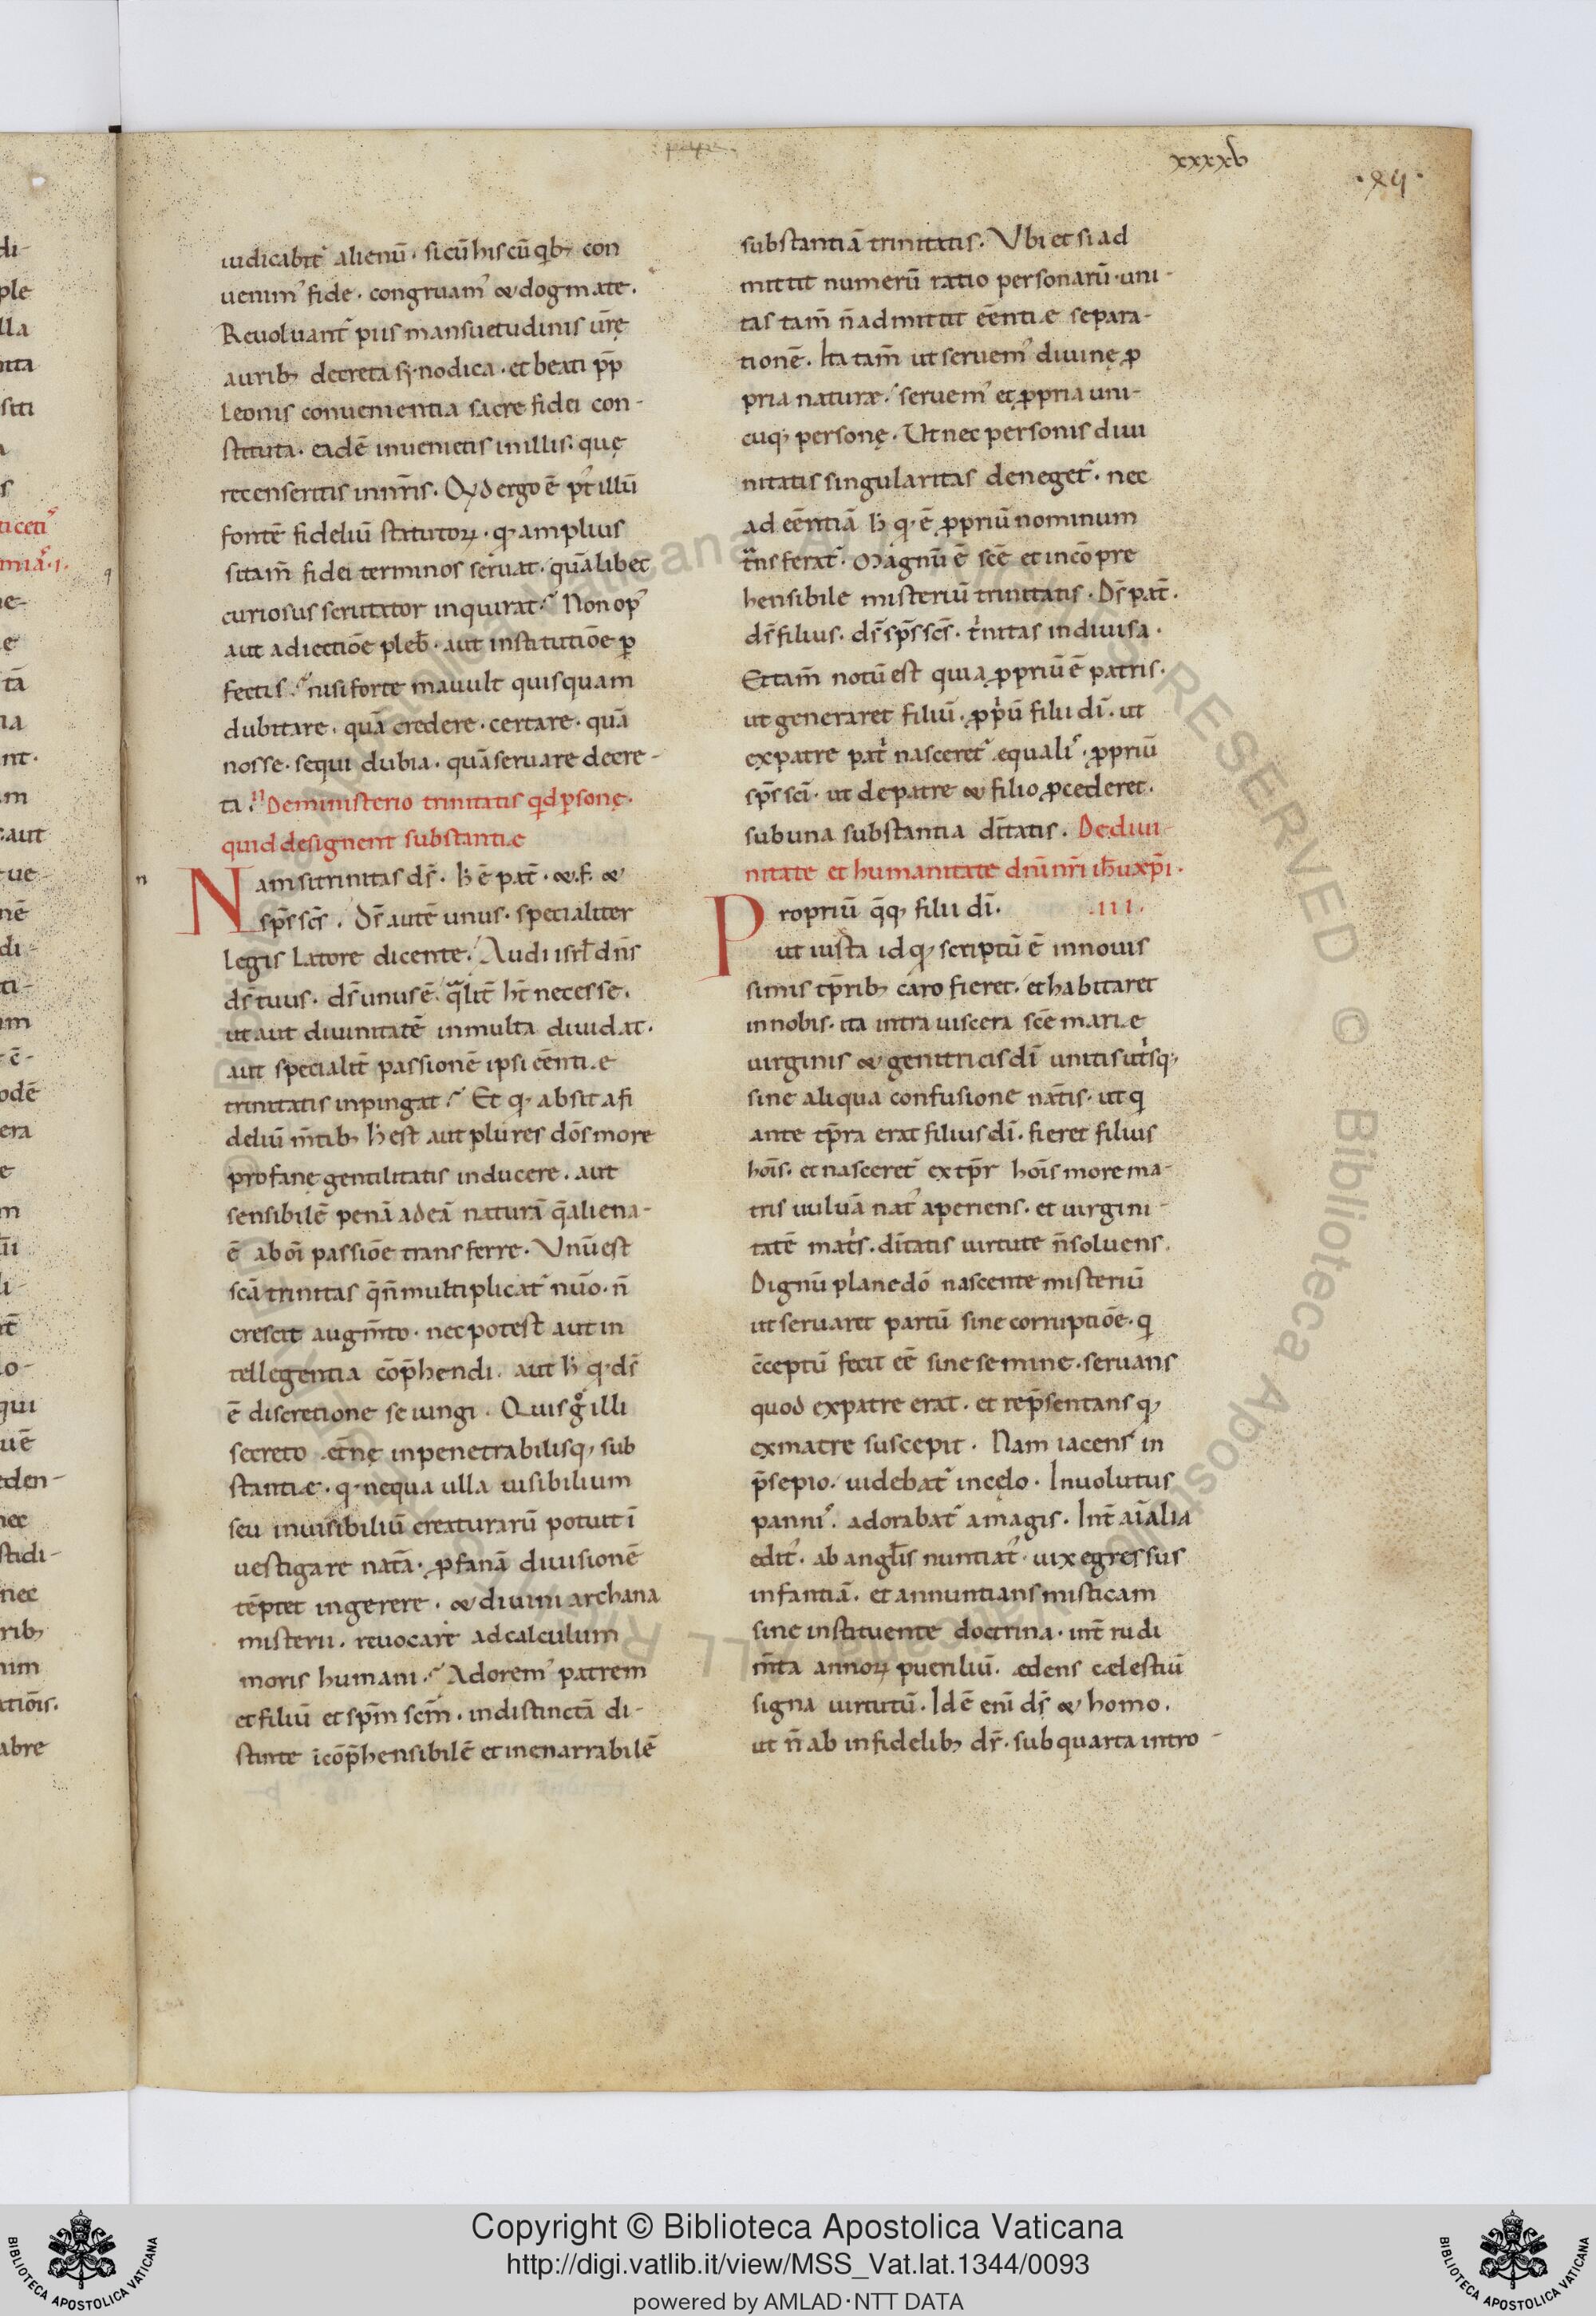 xxxxv
iudicabit᷒ alienū. si cū his cū qib; con
uenim᷒ fide. congruam᷒ & dogmate.
Reuoluant᷒ piis mansuetudinis ur̄ę
aurib; decreta synodica. et beati pp̄
leonis conuenientia sacre fidei con-
stituta. eadē inuenietis in illis. quę
recenseritis in nr̄is. Qd ergo ē pt᷒ illū
fontē fideliū statutoꝝ. q̇ amplius
sitam̄ fidei terminos seruat. quālibet
curiosus scrutator inquirat. Non op᷒
aut adiectiōe pleb̄. aut institutiōe ꝑ
fectis. nisi forte mauult quisquam
dubitare. quā credere. certare. quā
nosse. sequi dubia. quā seruare decre-
ta. II De ministerio trinitatis qd ꝑsonę.
quid designent substantiæ
Nam si trinitas ds̄. h̄ ē pat̄. &. f. &
sp̄s sc̄s. Ds̄ autē unus. specialiter
legis latore dicente. Audi isrl̄ dn̄s
ds̄ tuus. ds̄ unus ē. qͣlit̄ ht̄ necesse.
ut aut diuinitatē in multa diuidat.
aut specialit̄ passionē ipsi eēntiæ
trinitatis inpingat. Et q̇ absit a fi
deliū m̄tib; h̄ est aut plures dōs more
profanę gentilitatis inducere. aut
sensibilē penā ad eā naturā q̄ aliena-
ē ab oī passiōe transferre. Vnū est
scā trinitas q̄ n̄ multiplicat᷒ nūo. n̄
crescit augm̄to. nec potest aut in
tellegentia cōp̄hendi. aut h̄ q̇ ds̄
ē discretione seiungi. Quis gͦ illi
secreto æt̄nę inpenetrabilisq; sub
stantiæ. q̇ nequa ulla uisibilium
seu inuisibiliū creaturarū potuit ī
uestigare nat̄a. ꝓfanā diuisionē
tēptet ingerere. & diuini archana
misterii. reuocare ad calculum
moris humani. Adorem᷒ patrem
et filiū et sp̄m sc̄m. indistinctā di-
stinte īcōp̄hensibilē et inenarrabilē
substantiā trinitatis. Vbi et si ad
mittit numerū ratio personarū. uni-
tas tam̄ n̄ admittit eēntiæ separa-
tionē. Ita tam̄ ut seruem᷒ diuinę ꝓ
pria naturæ. seruem᷒ et ꝓpria uni-
cuiq; personę. Ut nec personis diui
nitatis singularitas deneget᷒. nec
ad eēntiā h̄ q̇ ē ꝓpriū nominum
tͣnsferat᷒. Magnū ē scē et incōpre
hensibile misteriū trinitatis. Ds̄ pat̄.
ds̄ filius. ds̄ sp̄s sc̄s. tⁱnitas indiuisa.
Et tam̄ notū est quia ꝓpriū ē patris.
ut generaret filiū. ꝓpⁱū filii dī. ut
ex patre patⁱ nasceret᷒ equalis. ꝓpriū
sp̄s scī. ut de patre & filio ꝓcederet.
sub una substantia dītatis. De diui-
nitate et humanitate dn̄i nr̄i ih̄u xp̄i.
Propriū q̄q; filii dī. .III.
ut iuxta id q̇ scriptū ē in nouis
simis tp̄rib; caro fieret. et habitaret
in nobis. ita intra uiscera scē mariæ
uirginis & genitricis dī unitis utⁱsq;
sine aliqua confusione nat̄is. ut q
ante tp̄ra erat filius dī. fieret filius
hoīs. et nasceret᷒ ex tp̄r hoīs more ma-
tris uuluā nat᷒ aperiens. et uirgini-
tatē matⁱs. dītatis uirtute n̄ soluens.
Dignū plane dō nascente misteriū
ut seruaret partū sine corruptiōe. q
c̄ceptū fecit eē sine semine. seruans
quod ex patre erat. et rep̄sentans q;
ex matre suscepit. Nam iacens in
p̄sepio. uidebat᷒ in cęlo. Inuolutus
pannis. adorabat᷒ a magis. Int̄ aīalia
edit᷒. ab angl̄is nuntiat᷒. uix egressus
infantiā. et annuntians misticam
sine instituente doctrina. int̄ rudi
m̄ta annoꝝ pueriliū. ædens cælestiū
signa uirtutū. Idē enī ds̄ & homo.
ut n̄ ab infidelib; dr̄. sub quarta intro-
Copyright © Biblioteca Apostolica Vaticana
http://digi.vatlib.it/view/MSS_Vat.lat.1344/0093
powered by AMLAD·NTT DATA
BIBLIOTECA APOSTOLICA VATICANA
BIBLIOTECA APOSTOLICA VATICANA